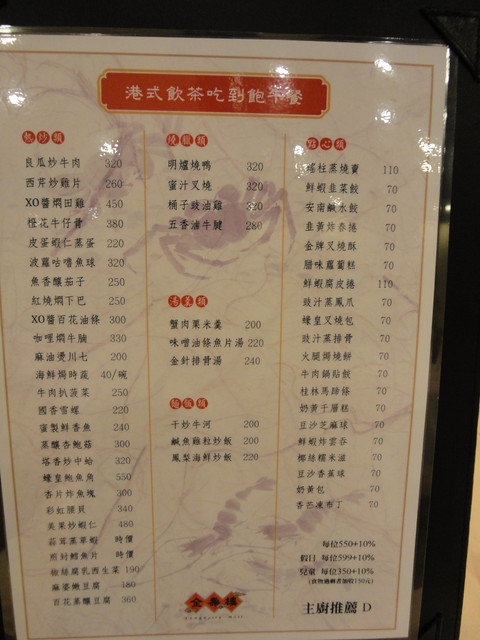 港式飲茶吃到飽午餐
熱炒類
良瓜炒牛肉 320
西芹炒雞片 260
XO醬燜田雞 450
橙花牛仔骨 380
皮蛋蝦仁蒸蛋 220
波蘿咕嚕魚球 320
魚香釀茄子 250
紅燒燜下巴 250
XO醬百花油條 300
咖哩燜牛腩 330
麻油燙川七 200
海鮮焗時蔬 40/碗
牛肉扒菠菜 250
國香雪螺 220
蜜製鮮香魚 240
蒸釀杏鮑菇 300
塔香炒中蛤 320
蠔皇鮑魚角 550
杏片炸魚塊 300
彩虹腰貝 340
美果炒蝦仁 480
蒜茸蒸草蝦 時價
煎封鱈魚片 時價
椒絲腐乳西生菜 190
麻婆嫩豆腐 180
百花蒸釀豆腐 360
燒臘類
明爐燒鴨 320
蜜汁叉燒 320
桶子豉油雞 320
五香滷牛腱 280
湯羹類
蟹肉粟米羹 200
味噌油條魚片湯 220
金針排骨湯 240
麵飯類
干炒牛河 200
鹹魚雞粒炒飯 200
鳳梨海鮮炒飯 220
點心類
瑤柱蒸燒賣 110
鮮蝦韭菜餃 70
安南鹹水餃 70
韭黃炸春捲 70
金牌叉燒酥 70
臘味蘿蔔糕 70
鮮蝦腐皮捲 110
豉汁蒸鳳爪 70
蠔皇叉燒包 70
豉汁蒸排骨 70
火腿焗燒餅 70
牛肉鍋貼餃 70
桂林馬蹄條 70
奶黃千層糕 70
豆沙芝麻球 70
鮮蝦炸雲吞 70
椰絲糯米滋 70
豆沙香蕉球 70
奶黃包 70
香芒凍布丁 70
每位550+10%
假日 每位599+10%
兒童 每位350+10%
主廚推薦 D